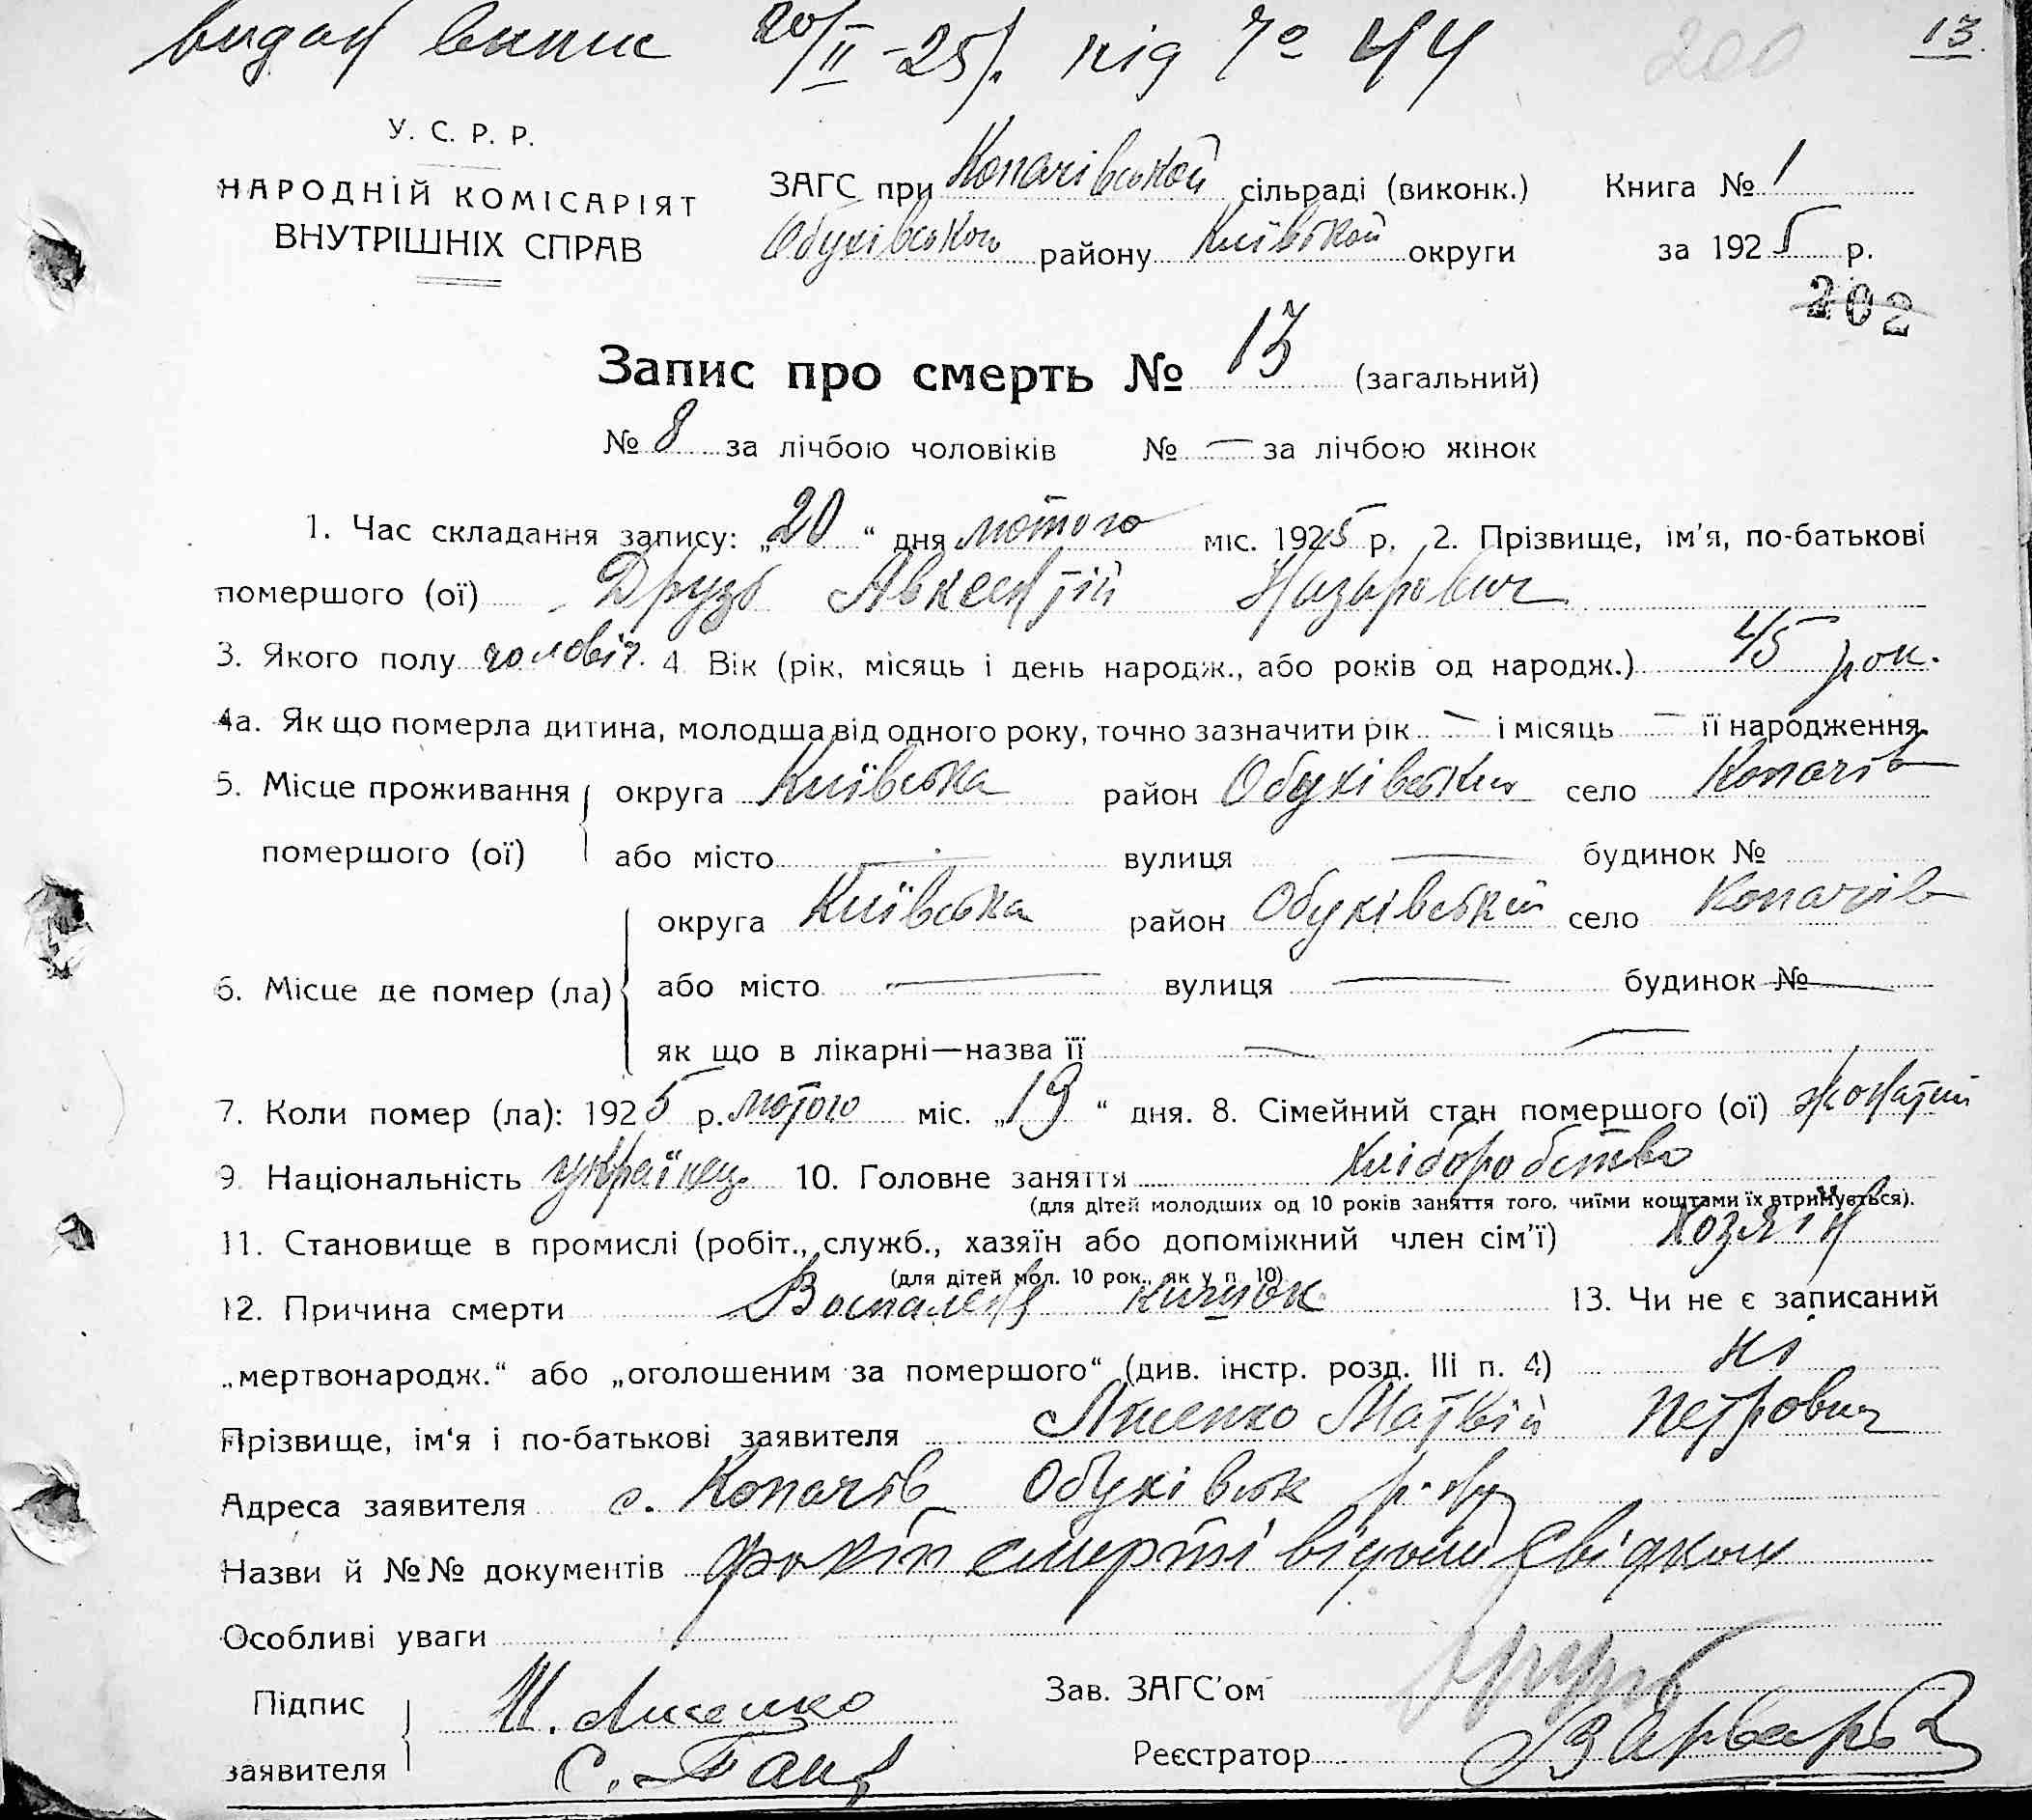 видав випис 20/II-25р. під № 44 200 13.
У. С. Р. Р.
НАРОДНІЙ КОМІСАРІЯТ
ВНУТРІШНІХ СПРАВ
ЗАГС при Копачівській сільраді (виконк.) Книга № 1
Обухівського району Київської округи за 1925 р.
202
Запис про смерть № 13 (загальний)
№ 8 за лічбою чоловіків № — за лічбою жінок
1. Час складання запису: „20“ дня лютого міс. 1925 р. 2. Прізвище, ім'я, по-батькові
помершого (ої) Друзь Авксентій Назарович
3. Якого полу чоловіч. 4. Вік (рік, місяць і день народж., або років од народж.) 45 рок.
4а. Як що померла дитина, молодша від одного року, точно зазначити рік — і місяць — її народження.
5. Місце проживання округа Київська район Обухівський село Копачів
помершого (ої) або місто — вулиця — будинок №
округа Київська район Обухівський село Копачів
6. Місце де помер (ла) або місто — вулиця — будинок № —
як що в лікарні—назва її — —
7. Коли помер (ла): 1925 р. лютого міс. „19“ дня. 8. Сімейний стан помершого (ої) жонатий
9. Національність українец. 10. Головне заняття хліборобство
(для дітей молодших од 10 років заняття того, чиїми коштами їх втримується).
11. Становище в промислі (робіт., служб., хазяїн або допоміжний член сім'ї) хозяїн
(для дітей мол. 10 рок., як у п. 10)
12. Причина смерти Воспаленя кишок. 13. Чи не є записаний
„мертвонародж.“ або „оголошеним за помершого“ (див. інстр. розд. III п. 4) ні
Прізвище, ім'я і по-батькові заявителя Лисенко Матвій Петрович
Адреса заявителя с. Копачів Обухівськ р-ну
Назви й №№ документів факт смерті відомий свідком
Особливі уваги
Підпис М. Лисенко Зав. ЗАГС'ом
заявителя Реєстратор